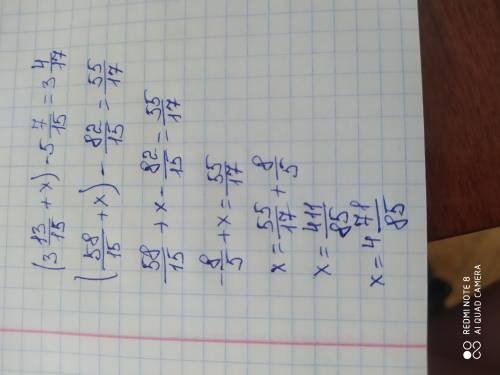 (3 13/15 + x) - 5 7/15 = 3 4/17
(58/15 + x) - 82/15 = 55/17
58/15 + x - 82/15 = 55/17
-8/5 + x = 55/17
x = 55/17 + 8/5
x = 411/85
x = 4 71/85
REDMI NOTE 8
AI QUAD CAMERA